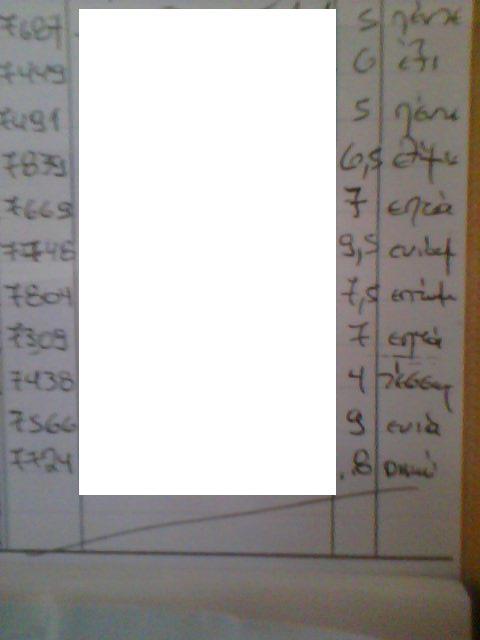 7687 5 πέντε
7449 6 έξι
7491 5 πέντε
7839 6,5
7669 7 επτά
7748 9,5
7804 7,5
7309 7 επτά
7438 4
7566 9 εννιά
7724 8 οκτώ